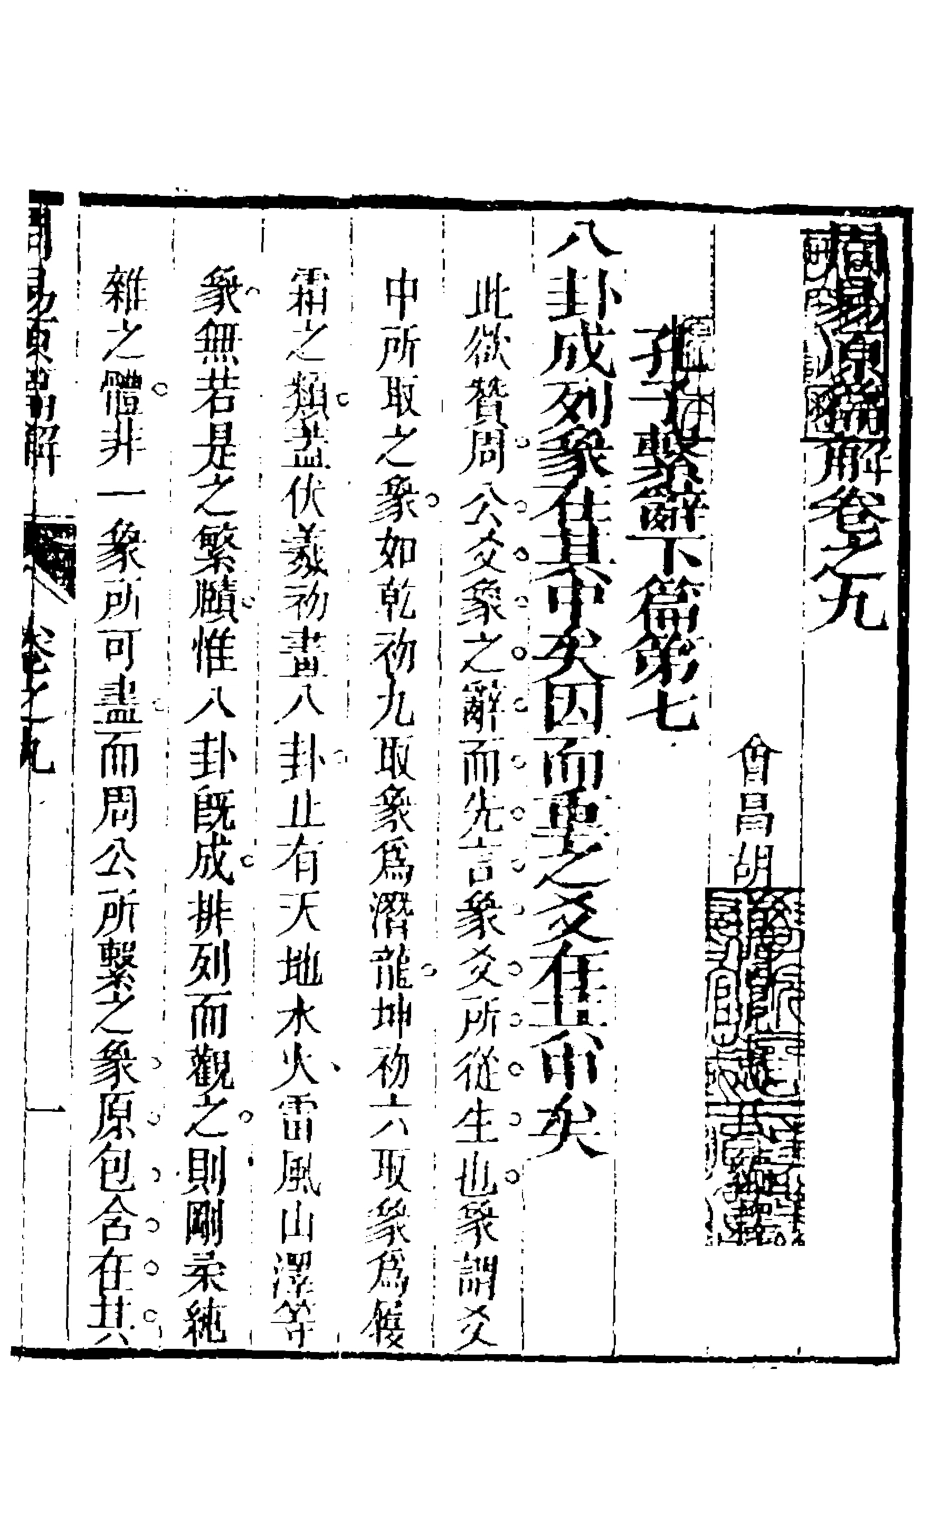 周易原篇解卷之九
會昌胡
孔子繫辭下篇第七
八卦成列象在其中矣因而重之爻在其中矣
此欲贊周公爻象之辭而先言象爻所從生也象謂爻
中所取之象如乾初九取象爲潛龍坤初六取象爲履
霜之類葢伏羲初畫八卦止有天地水火雷風山澤等
象無若是之繁賾惟八卦旣成排列而觀之則剛柔純
雜之體非一象所可盡而周公所繫之象原包含在其
周易原篇解
卷之九
一